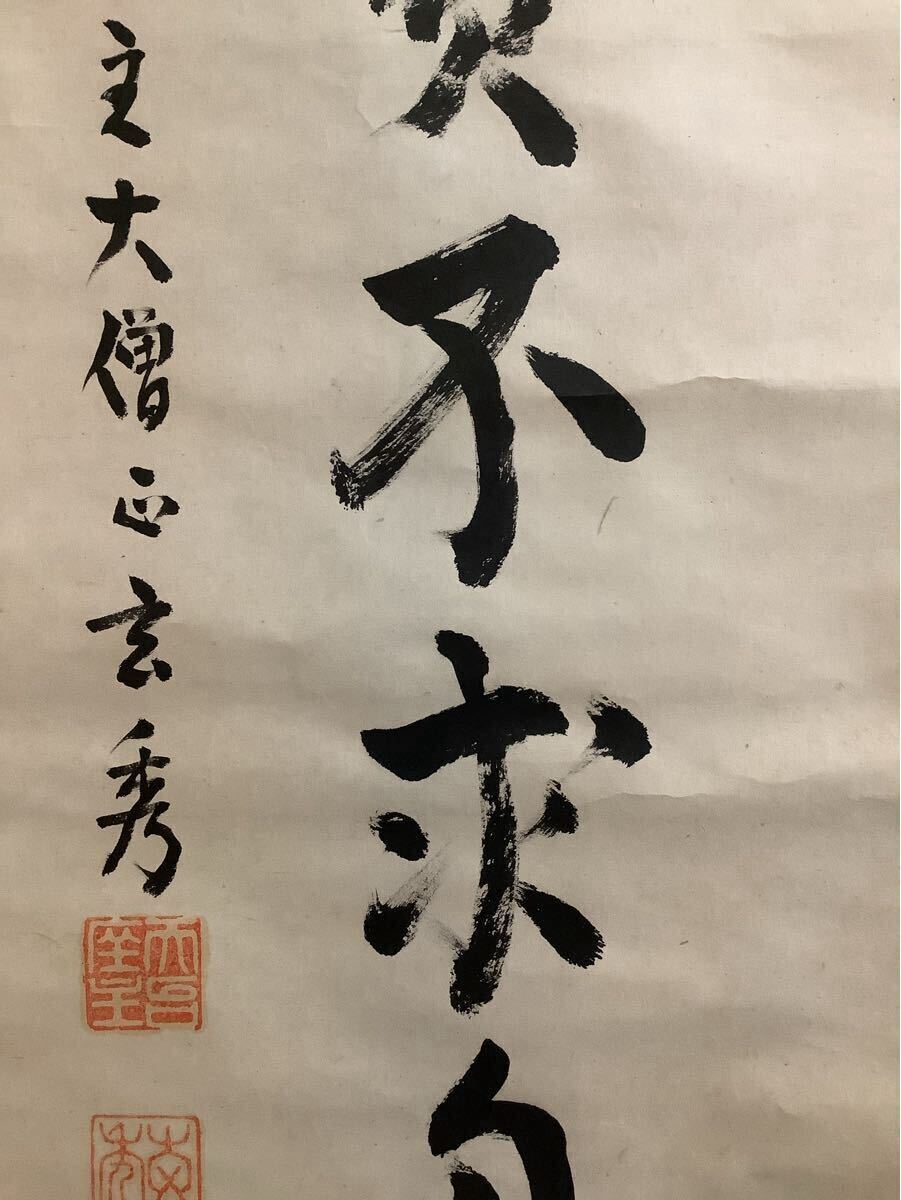 不求自
主大僧正玄秀